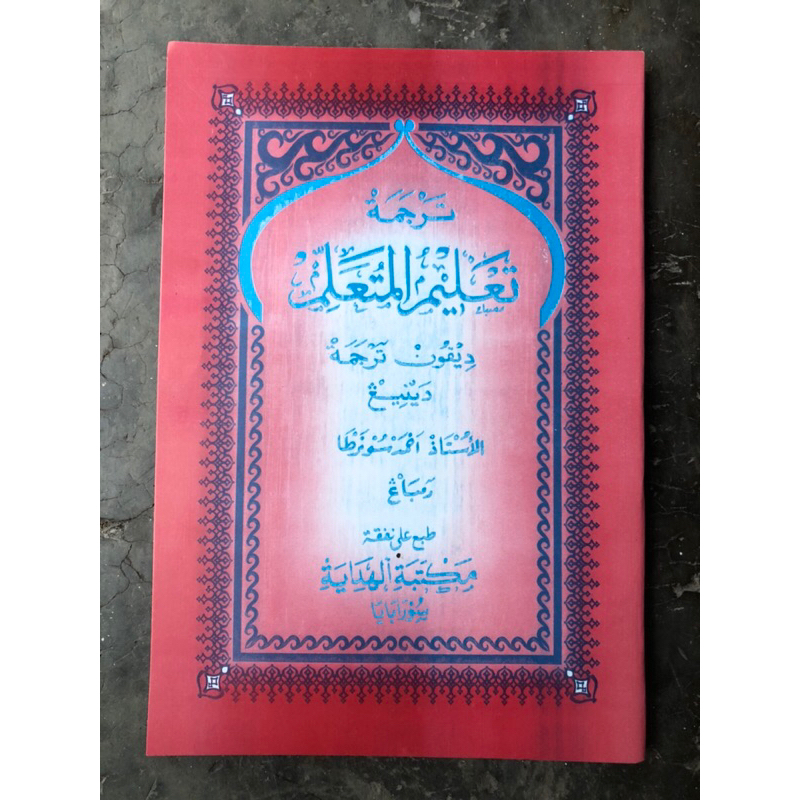 تَرْجَمَةْ
تَعْلِيْمُ الْمُتَعَلِّمْ
دِيْڤُونْ تَرْجَمَةْ
دَيْنِيْڠْ
الأُسْتَاذْ أَحْمَدْ سُونَرْطَا
رَمْبَاڠْ
طبع على نفقة
مَكْتَبَةْ الْهِدَايَةْ
سُورَابَايَا